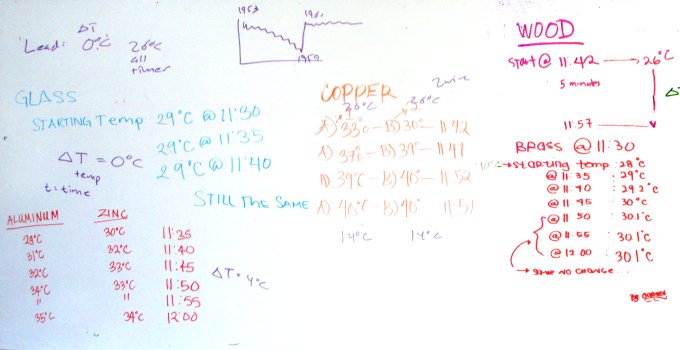 ΔT
Lead: 0°C 26°C
all
times
1953 1961
1959
GLASS
STARTING Temp 29°C @ 11:30
29°C @ 11:35
29°C @ 11:40
ΔT = 0°C
temp
t: time
STILL THE SAME
ALUMINUM ZINC
29°C 30°C 11:35
31°C 32°C 11:40
32°C 33°C 11:45
34°C 33°C 11:50
" " 11:55
35°C 34°C 12:00
ΔT = 4°C
COPPER
26°C 26°C
A) 33° — B) 30° — 11 42
A) 37°C — B) 39° — 11 47
A) 39°C — B) 40° — 11 52
A) 40°C — B) 40° — 11 57
14°C 14°C
WOOD
Start @ 11.42 → 26°C
5 minutes
11:57
BRASS @ 11:30
→ STARTING temp : 28°C
@ 11 35 : 29°C
@ 11 40 : 29.2°C
@ 11 45 : 30°C
@ 11 50 : 30.1°C
@ 11 55 : 30.1°C
@ 12 00 : 30.1°C
→ SAME NO CHANGE...